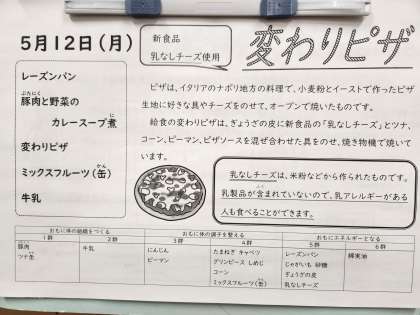 5月12日(月)
新食品
乳なしチーズ使用
変わりピザ
レーズンパン
豚肉と野菜の
カレースープ煮
変わりピザ
ミックスフルーツ(缶)
牛乳
ピザは、イタリアのナポリ地方の料理で、小麦粉とイーストで作ったピザ
生地に好きな具やチーズをのせて、オーブンで焼いたものです。
給食の変わりピザは、ぎょうざの皮に新食品の「乳なしチーズ」とツナ、
コーン、ピーマン、ピザソースを混ぜ合わせた具をのせ、焼き物機で焼いて
います。
乳なしチーズは、米粉などから作られたものです。
乳製品が含まれていないので、乳アレルギーがある
人も食べることができます。
おもに体の組織をつくる
おもに体の調子を整える
おもにエネルギーとなる
1群 2群 3群 4群 5群 6群
豚肉 牛乳 にんじん たまねぎ キャベツ レーズンパン 綿実油
ツナ缶 ピーマン グリンピース しめじ じゃがいも 砂糖
コーン ぎょうざの皮
ミックスフルーツ(缶) 乳なしチーズ